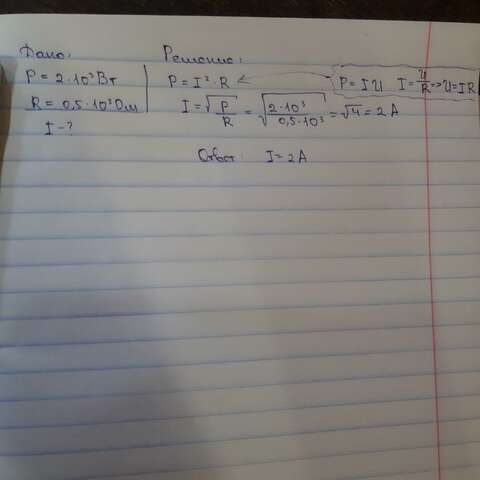 Дано:
P = 2·10³Вт
R = 0,5·10³Ом
I - ?
Решение:
P = I²·R
P = I U I = U/R => U = IR
I = √(P/R) = √(2·10³/0,5·10³) = √4 = 2 А
Ответ: I = 2 А